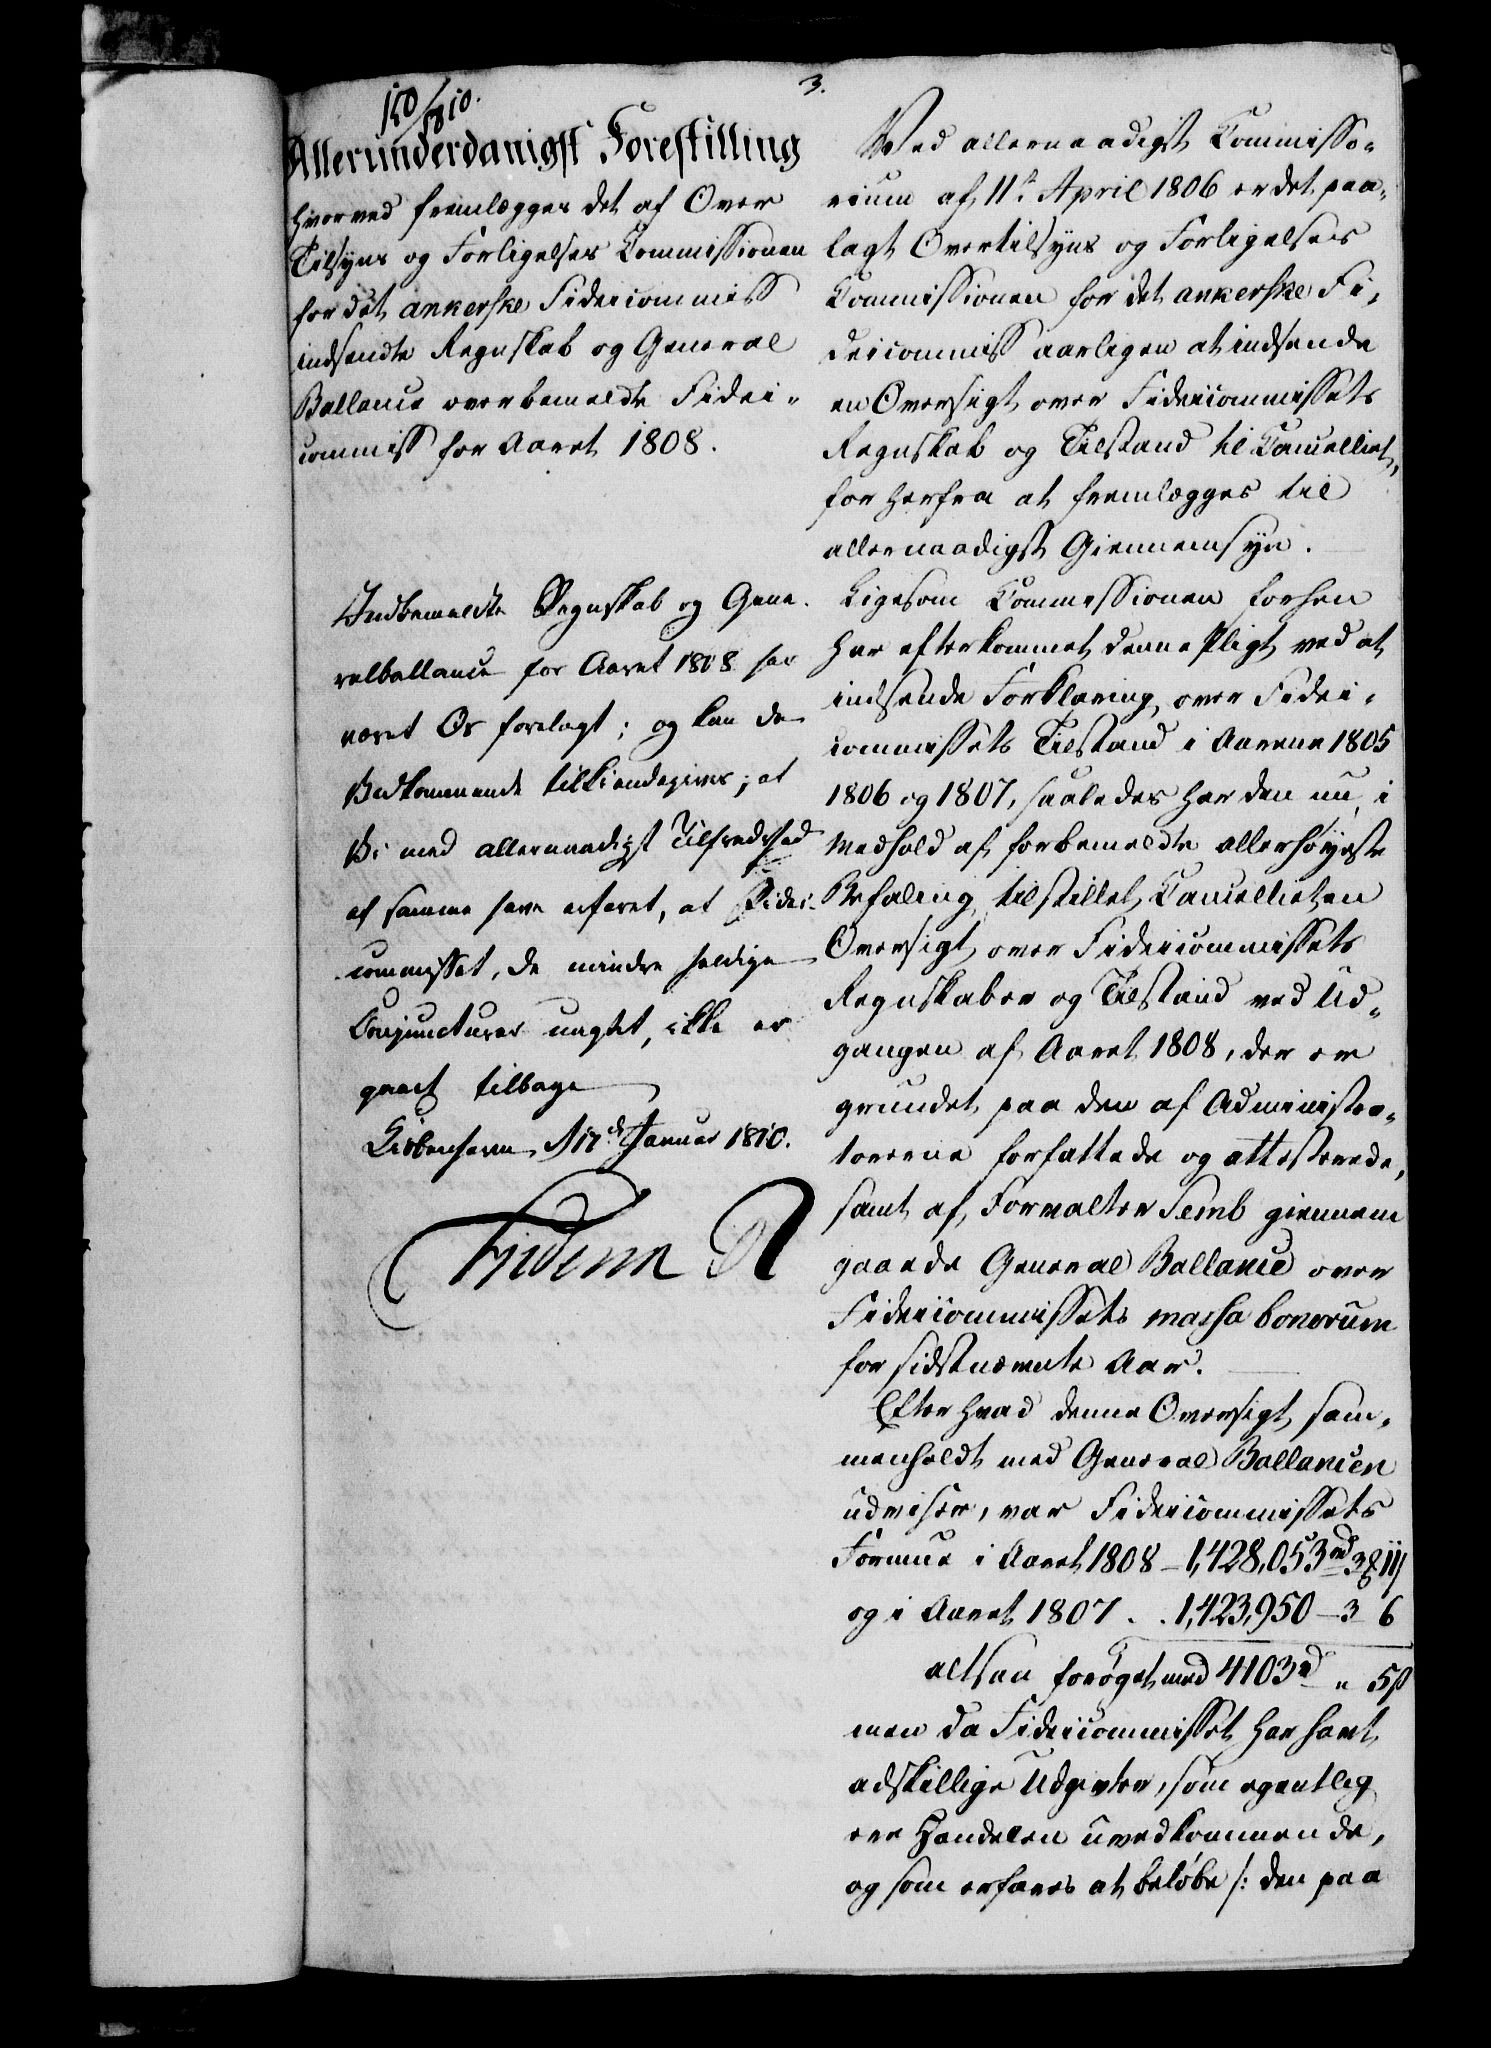 3.
150/1810.
Allerunderdanigst Forestilling
hvorved fremlægges det af Over
Tilsyns og Forligelses Commissionen
for det ankerske Fideicommiss
indsendte Regnskab og General
Ballance over bemeldte Fidei-
commiss for Aaret 1808.
Indbemeldte Regnskab og Gene-
ralballance for Aaret 1808 har
været Os forelagt; og kan de
Vedkommende tilkiendegives, at
Vi med allernaadigst Tilfredshed
af samme have erfaret, at Fidei-
commisset, de mindre heldige
Conjuncturer uagtet, ikke er
gaaet tilbage
Kiøbenhavn, d 17de Januar 1810.
Friderich R
Ved allernaadigst Commisso-
rium af 11te April 1806 er det paa-
lagt Overtilsyns og Forligelses
Commissionen for det ankerske Fi-
deicommiss aarligen at indsende
en Oversigt over Fideicommissets
Regnskab og Tilstand til Cancelliet,
for herfra at fremlægges til
allernaadigst Giennemsyn.
Ligesom Commissionen forhen
har efterkommet denne Pligt ved at
indsende Forklaring over Fidei-
commissets Tilstand i Aarene 1805
1806 og 1807, saaledes har den nu, i
Medhold af forbemeldte allerhøyeste
Befaling tilstillet Cancelliet en
Oversigt over Fideicommissets
Regnskaber og Tilstand ved Ud-
gangen af Aaret 1808, der er
grundet paa den af Administra-
torerne forfattede og attesterede,
samt af Forvalter Semb giennem
gaaede General Ballance over
Fideicommissets massa bonorum
for sidstnævnte Aar.
Efter hvad denne Oversigt, sam-
menholdt med General Ballancen
udviser, var Fideicommissets
Formue i Aaret 1808 - 1,428,053 rd 3 ₰ 11 ß
og i Aaret 1807 . . 1,423,950 - 3 6
altsaa forøget med 4103 rd " 5 ß
men da Fideicommisset har havt
adskillige Udgivter, som egentlig
ere Handelen uvedkommende,
og som erfares at beløbe /: den paa